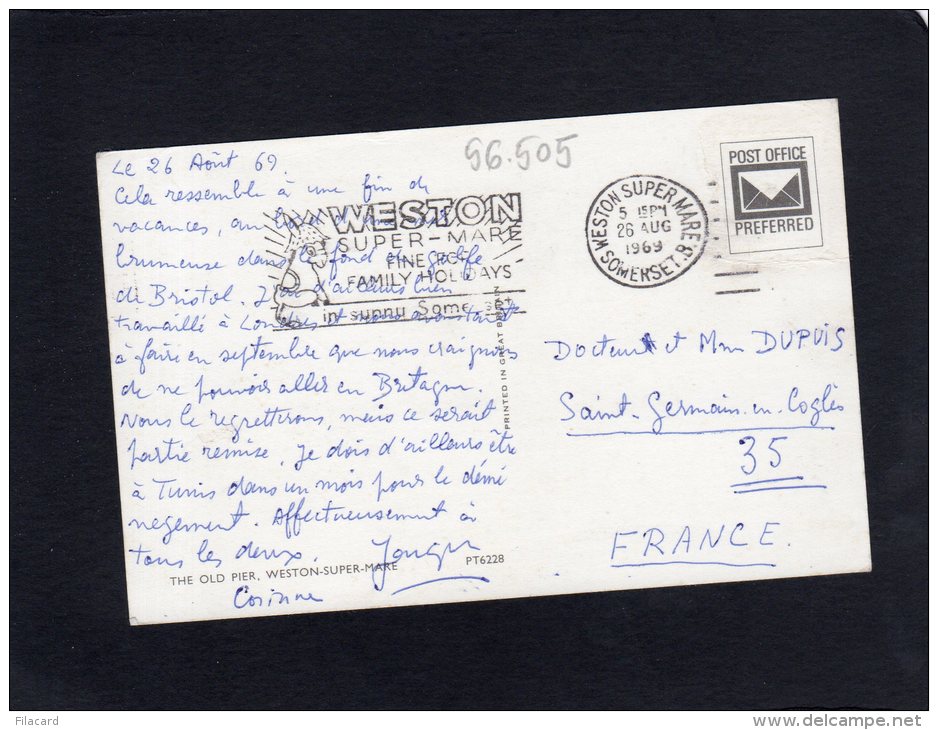 56.505
Le 26 Août 69.
Cela ressemble à une fin de
vacances, au bord d'une
brumeuse dans le fond du golfe
de Bristol. J'ai d'ailleurs bien
travaillé à Londres et nous avons tant
à faire en septembre que nous craignons
de ne pouvoir aller en Bretagne.
Nous le regretterons, mais ce serait
partie remise. Je dois d'ailleurs être
à Tunis dans un mois pour le démé
nagement. Affectueusement à
tous les deux.
Corinne
THE OLD PIER, WESTON-SUPER-MARE
PT6228
PRINTED IN GREAT BRITAIN
WESTON
SUPER-MARE
FINE FOR
FAMILY HOLIDAYS
in sunny Somerset
WESTON SUPER MARE
5 15PM
26 AUG
1969
SOMERSET.
POST OFFICE
PREFERRED
Docteur et Mme DUPUIS
Saint-Germain-en-Coglès
35
FRANCE.
Filacard
delcampe.net